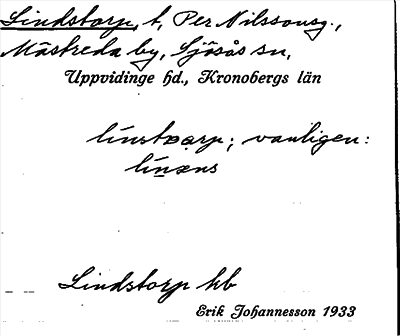 Lindstorp, t, Per Nilssonsg.,
Mästreda by, Sjösås sn,
Uppvidinge hd., Kronobergs län
línstɔrp; vanligen:
línæns
Lindstorp hb
Erik Johannesson 1933